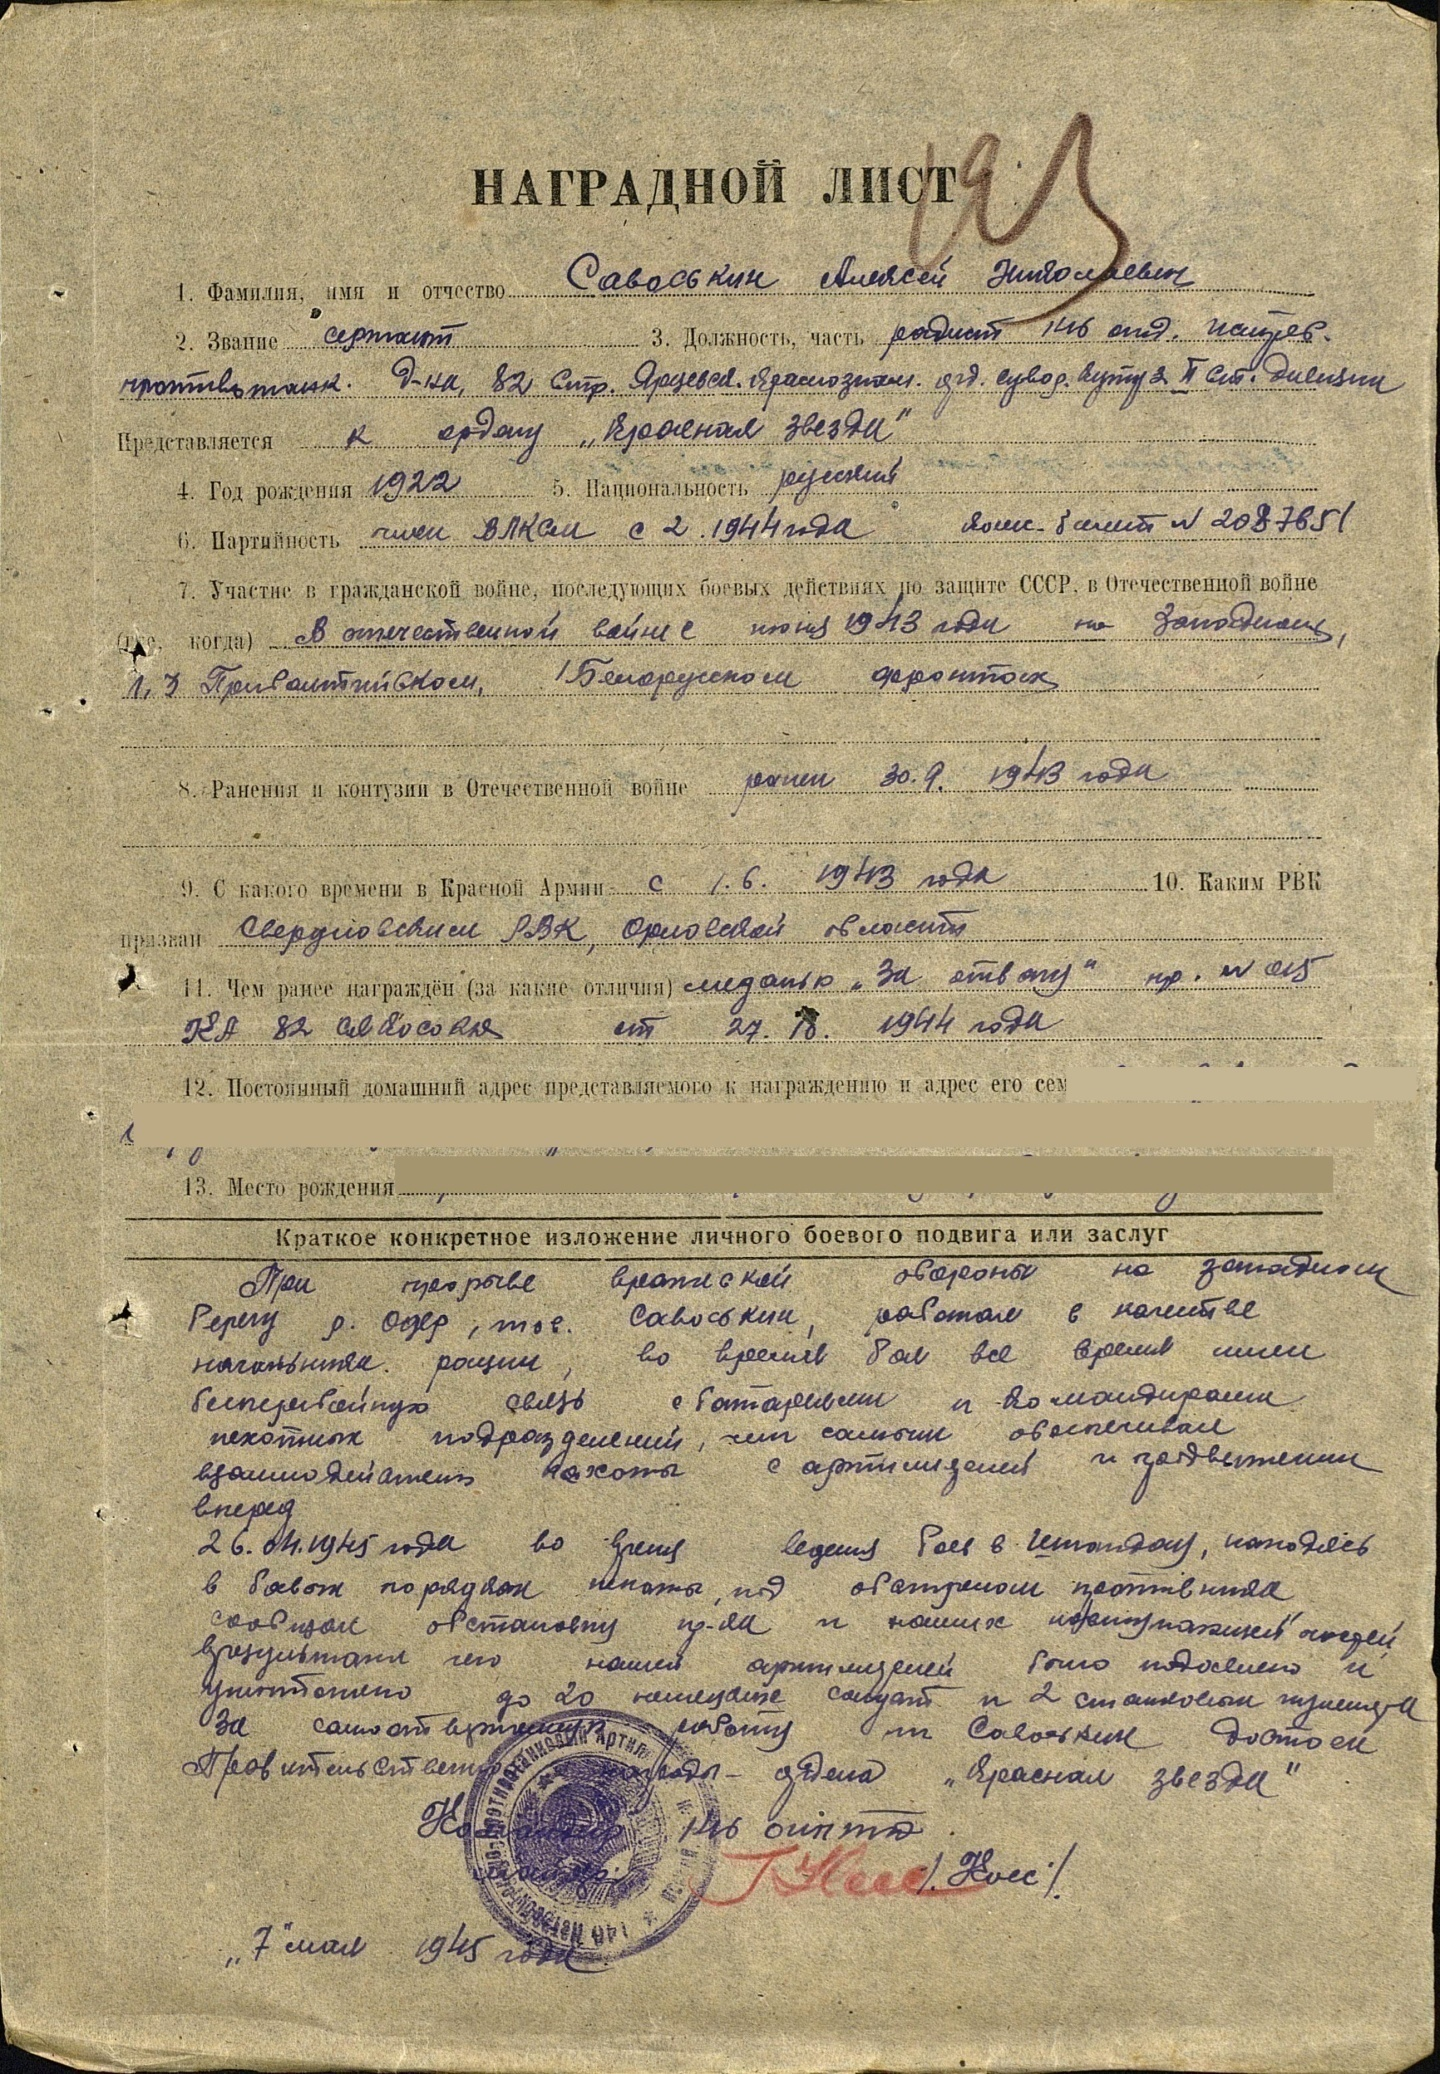 НАГРАДНОЙ ЛИСТ
1. Фамилия, имя и отчество Савоськин Алексей Николаевич
2. Звание сержант 3. Должность, часть радист 146 отд. истреб.
противотанк. д-на, 82 стр. Ярцевск. Краснознам. орд. Сувор. Кутуз II ст. дивизии
Представляется к ордену „Красная звезда"
4. Год рождения 1922 5. Национальность русский
6. Партийность член ВЛКСМ с 2.1944 года комс. билет № 2087651
7. Участие в гражданской войне, последующих боевых действиях по защите СССР, в Отечественной войне
(где, когда) В отечественной войне с июня 1943 года на Западном,
1, 3 Прибалтийском, 1 Белорусском фронтах
8. Ранения и контузии в Отечественной войне ранен 30.9. 1943 года
9. С какого времени в Красной Армии с 1.6. 1943 года 10. Каким РВК
призван Свердловским РВК, Орловской области
11. Чем ранее награждён (за какие отличия) медалью „За отвагу" пр. № 015
82 от 27. 1944 года
12. Постоянный домашний адрес представляемого к награждению и адрес его сем
13. Место рождения
Краткое конкретное изложение личного боевого подвига или заслуг
При прорыве вражеской обороны на западном
берегу р. Одер, тов. Савоськин, работая в качестве
начальника рации, во время боя все время имел
бесперебойную связь с батареями и командирами
пехотных подразделений, чем самым обеспечивал
взаимодействие пехоты с артиллерией и продвижении
вперед
26.04.1945 года во время ведения боев в находясь
в боевых порядках пехоты, под обстрелом противника
сообщал обстановку пр-ка и наших наступающих частей
в результате чего нашей артиллерией было подавлено и
уничтожено до 20 немецких солдат и 2 станковых пулемета
За самоотверженную работу т. Савоськин достоин
Правительственной награды - ордена „Красная звезда"
Командир 146 оиптд
майор /Носс/
„7" мая 1945 года